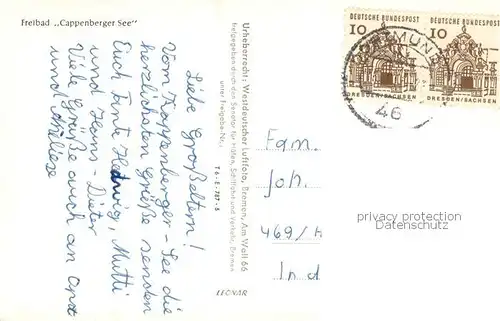 Freibad „Cappenberger See“
Liebe Großeltern!
Vom Kappenberger-See die
herzlichsten Grüße senden
Euch Tante Hedwig, Mutti
und Hans-Dieter
Viele Grüße auch an
und
Urheberrecht: Westdeutscher Luftfoto, Bremen, Am Wall 66
freigegeben durch den Senator für Häfen, Schiffahrt und Verkehr, Bremen
unter Freigabe-Nr.:
T 6-E-787-5
LEONAR
DEUTSCHE BUNDESPOST
10
DRESDEN/SACHSEN
DEUTSCHE BUNDESPOST
10
DRESDEN/SACHSEN
46
Fam.
Joh.
469/
privacy protection
Datenschutz